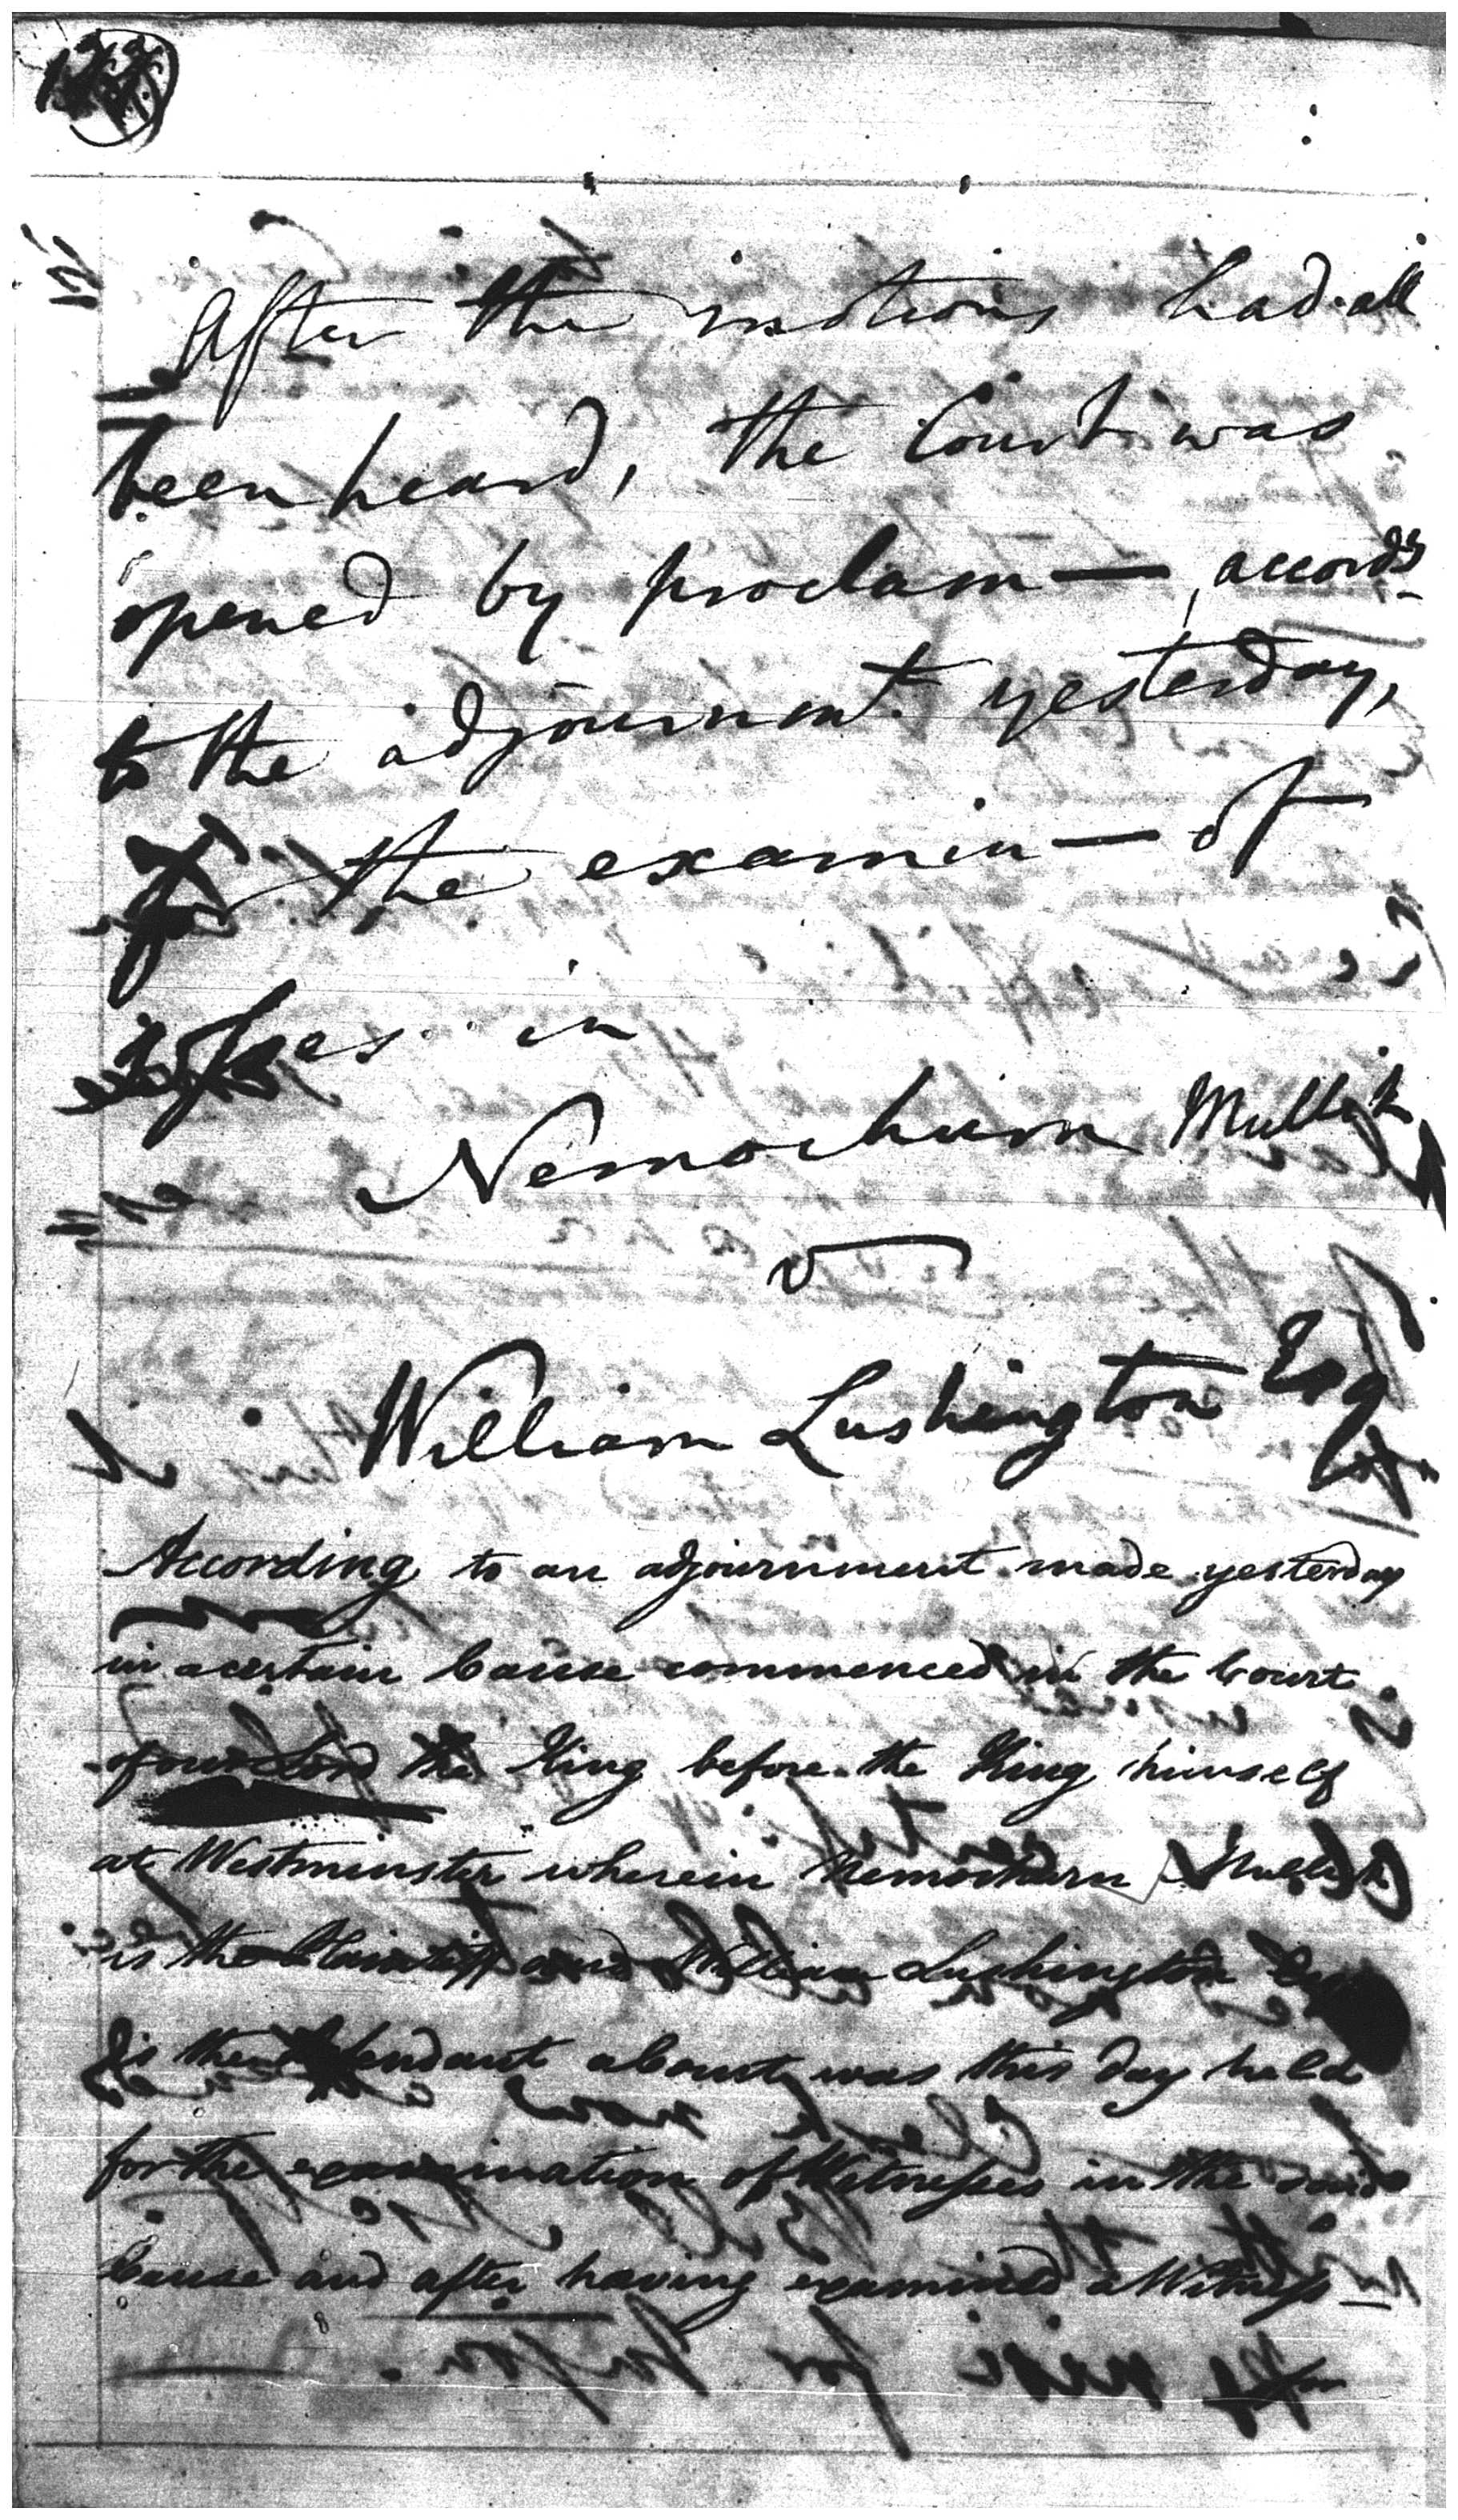 After the motions had all
been heard, the Court was
opened by proclam— accordg
to the adjournmt. yesterday,
for the examin— of
in
Nemochurn Mullick
v
William Lushington Esq
According to an adjournment made yesterday
in a certain Cause commenced in the Court
of our Lord the King before the King himself
at Westminster wherein Nemochurn Mullick
is the Plaintiff and William Lushington Esqr
is the Defendant a Court was this day held
for the examination of Witnesses in the said
Cause and after having examined a Witness